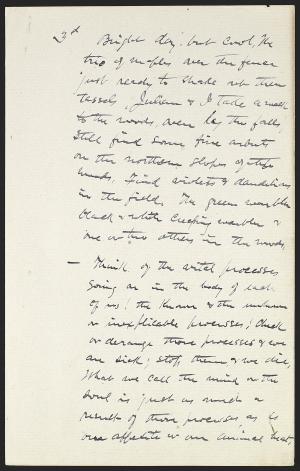 3d Bright day; but Cool, the
trio of maples over the fence
just ready to shake out their
tassels, Julian & I take a walk
to the woods, over by the falls,
Still find some fine arbutus
on the northern slopes of the
woods. Find violets & dandelions
in the field. The green warbler
black & white creeping warbler &
one or two others in the woods.
— Think of the vital processes
going on in the body of each
of us! the known & the unknown
or inexplicable processes; check
or derange those processes & we
are sick; stop them & we die,
What we call the mind or the
Soul is just as much a
result of those processes as is
our appetite or our animal heat,